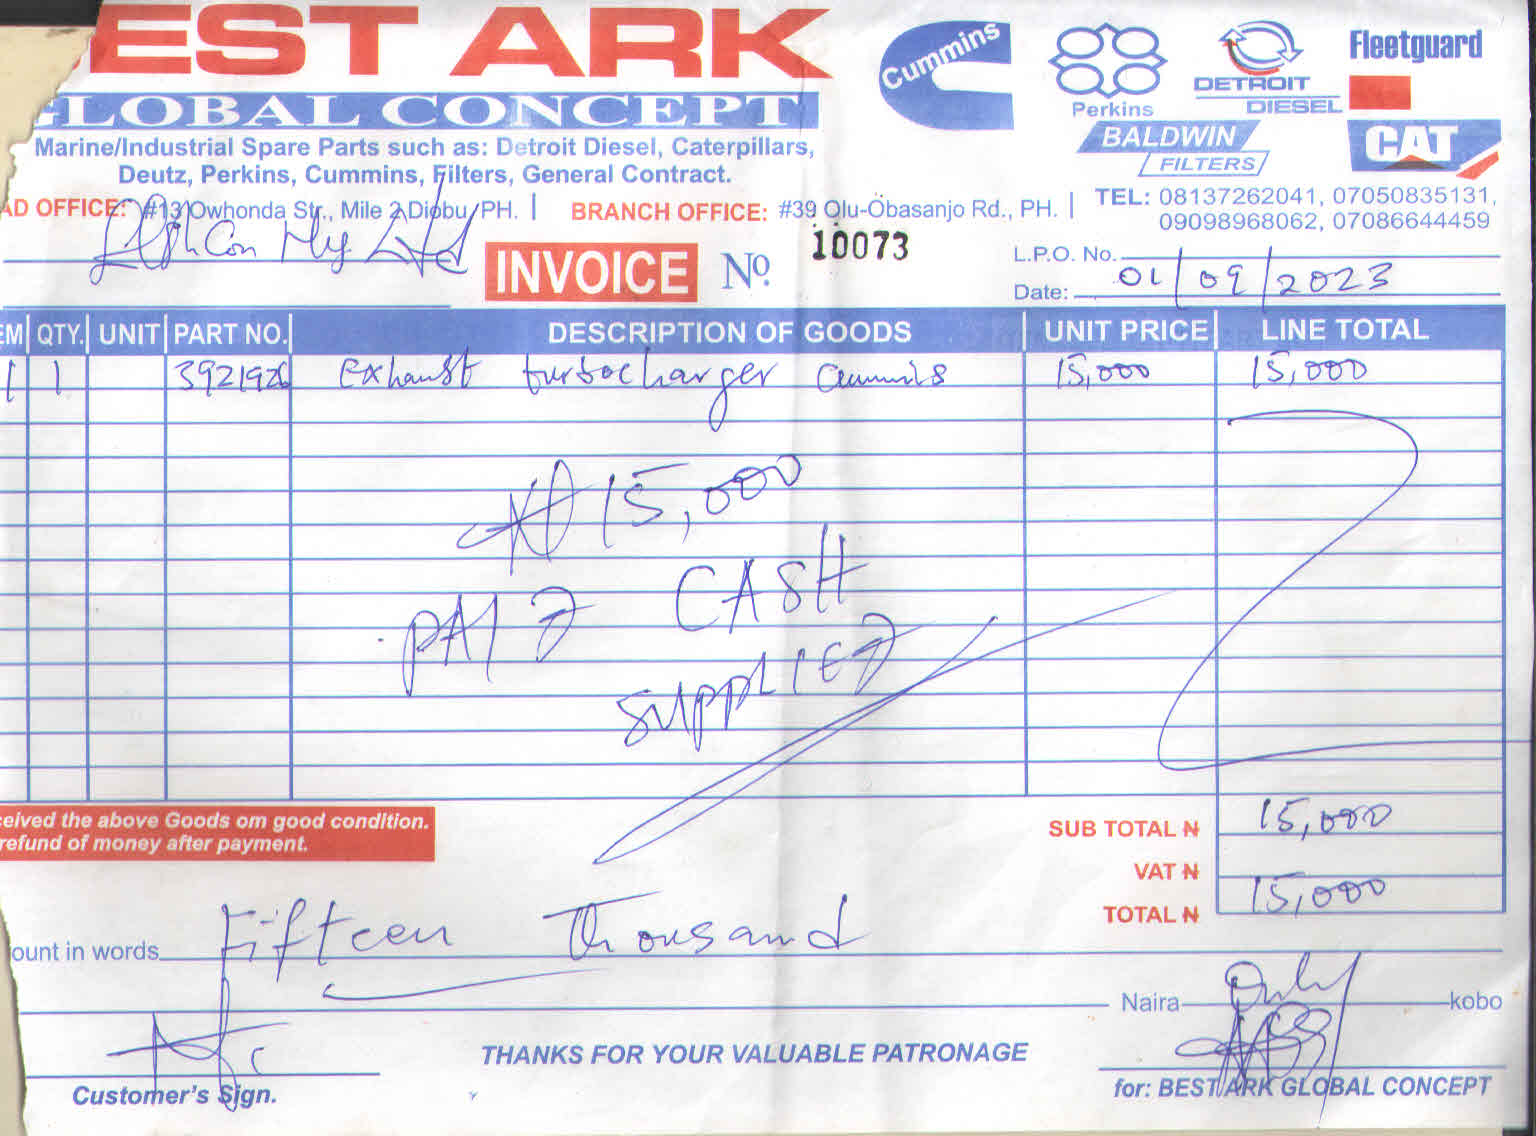 EST ARK
GLOBAL CONCEPT
Marine/Industrial Spare Parts such as: Detroit Diesel, Caterpillars,
Deutz, Perkins, Cummins, Filters, General Contract.
Cummins
Perkins
DETROIT
DIESEL
Fleetguard
BALDWIN
FILTERS
CAT
AD OFFICE: #13 Owhonda Str., Mile 2 Diobu, PH. | BRANCH OFFICE: #39 Olu-Obasanjo Rd., PH. | TEL: 08137262041, 07050835131,
09098968062, 07086644459
Ltd
INVOICE No. 10073
L.P.O. No.
Date: 01/09/2023
EM QTY. UNIT PART NO. DESCRIPTION OF GOODS UNIT PRICE LINE TOTAL
1 1 3921926 Exhaust turbocharger Cummins 15,000 15,000
₦15,000
PAID CASH
SUPPLIED
ceived the above Goods om good condition.
refund of money after payment.
SUB TOTAL ₦ 15,000
VAT ₦
TOTAL ₦ 15,000
ount in words Fifteen Thousand
Naira kobo
THANKS FOR YOUR VALUABLE PATRONAGE
Customer's Sign.
for: BEST ARK GLOBAL CONCEPT